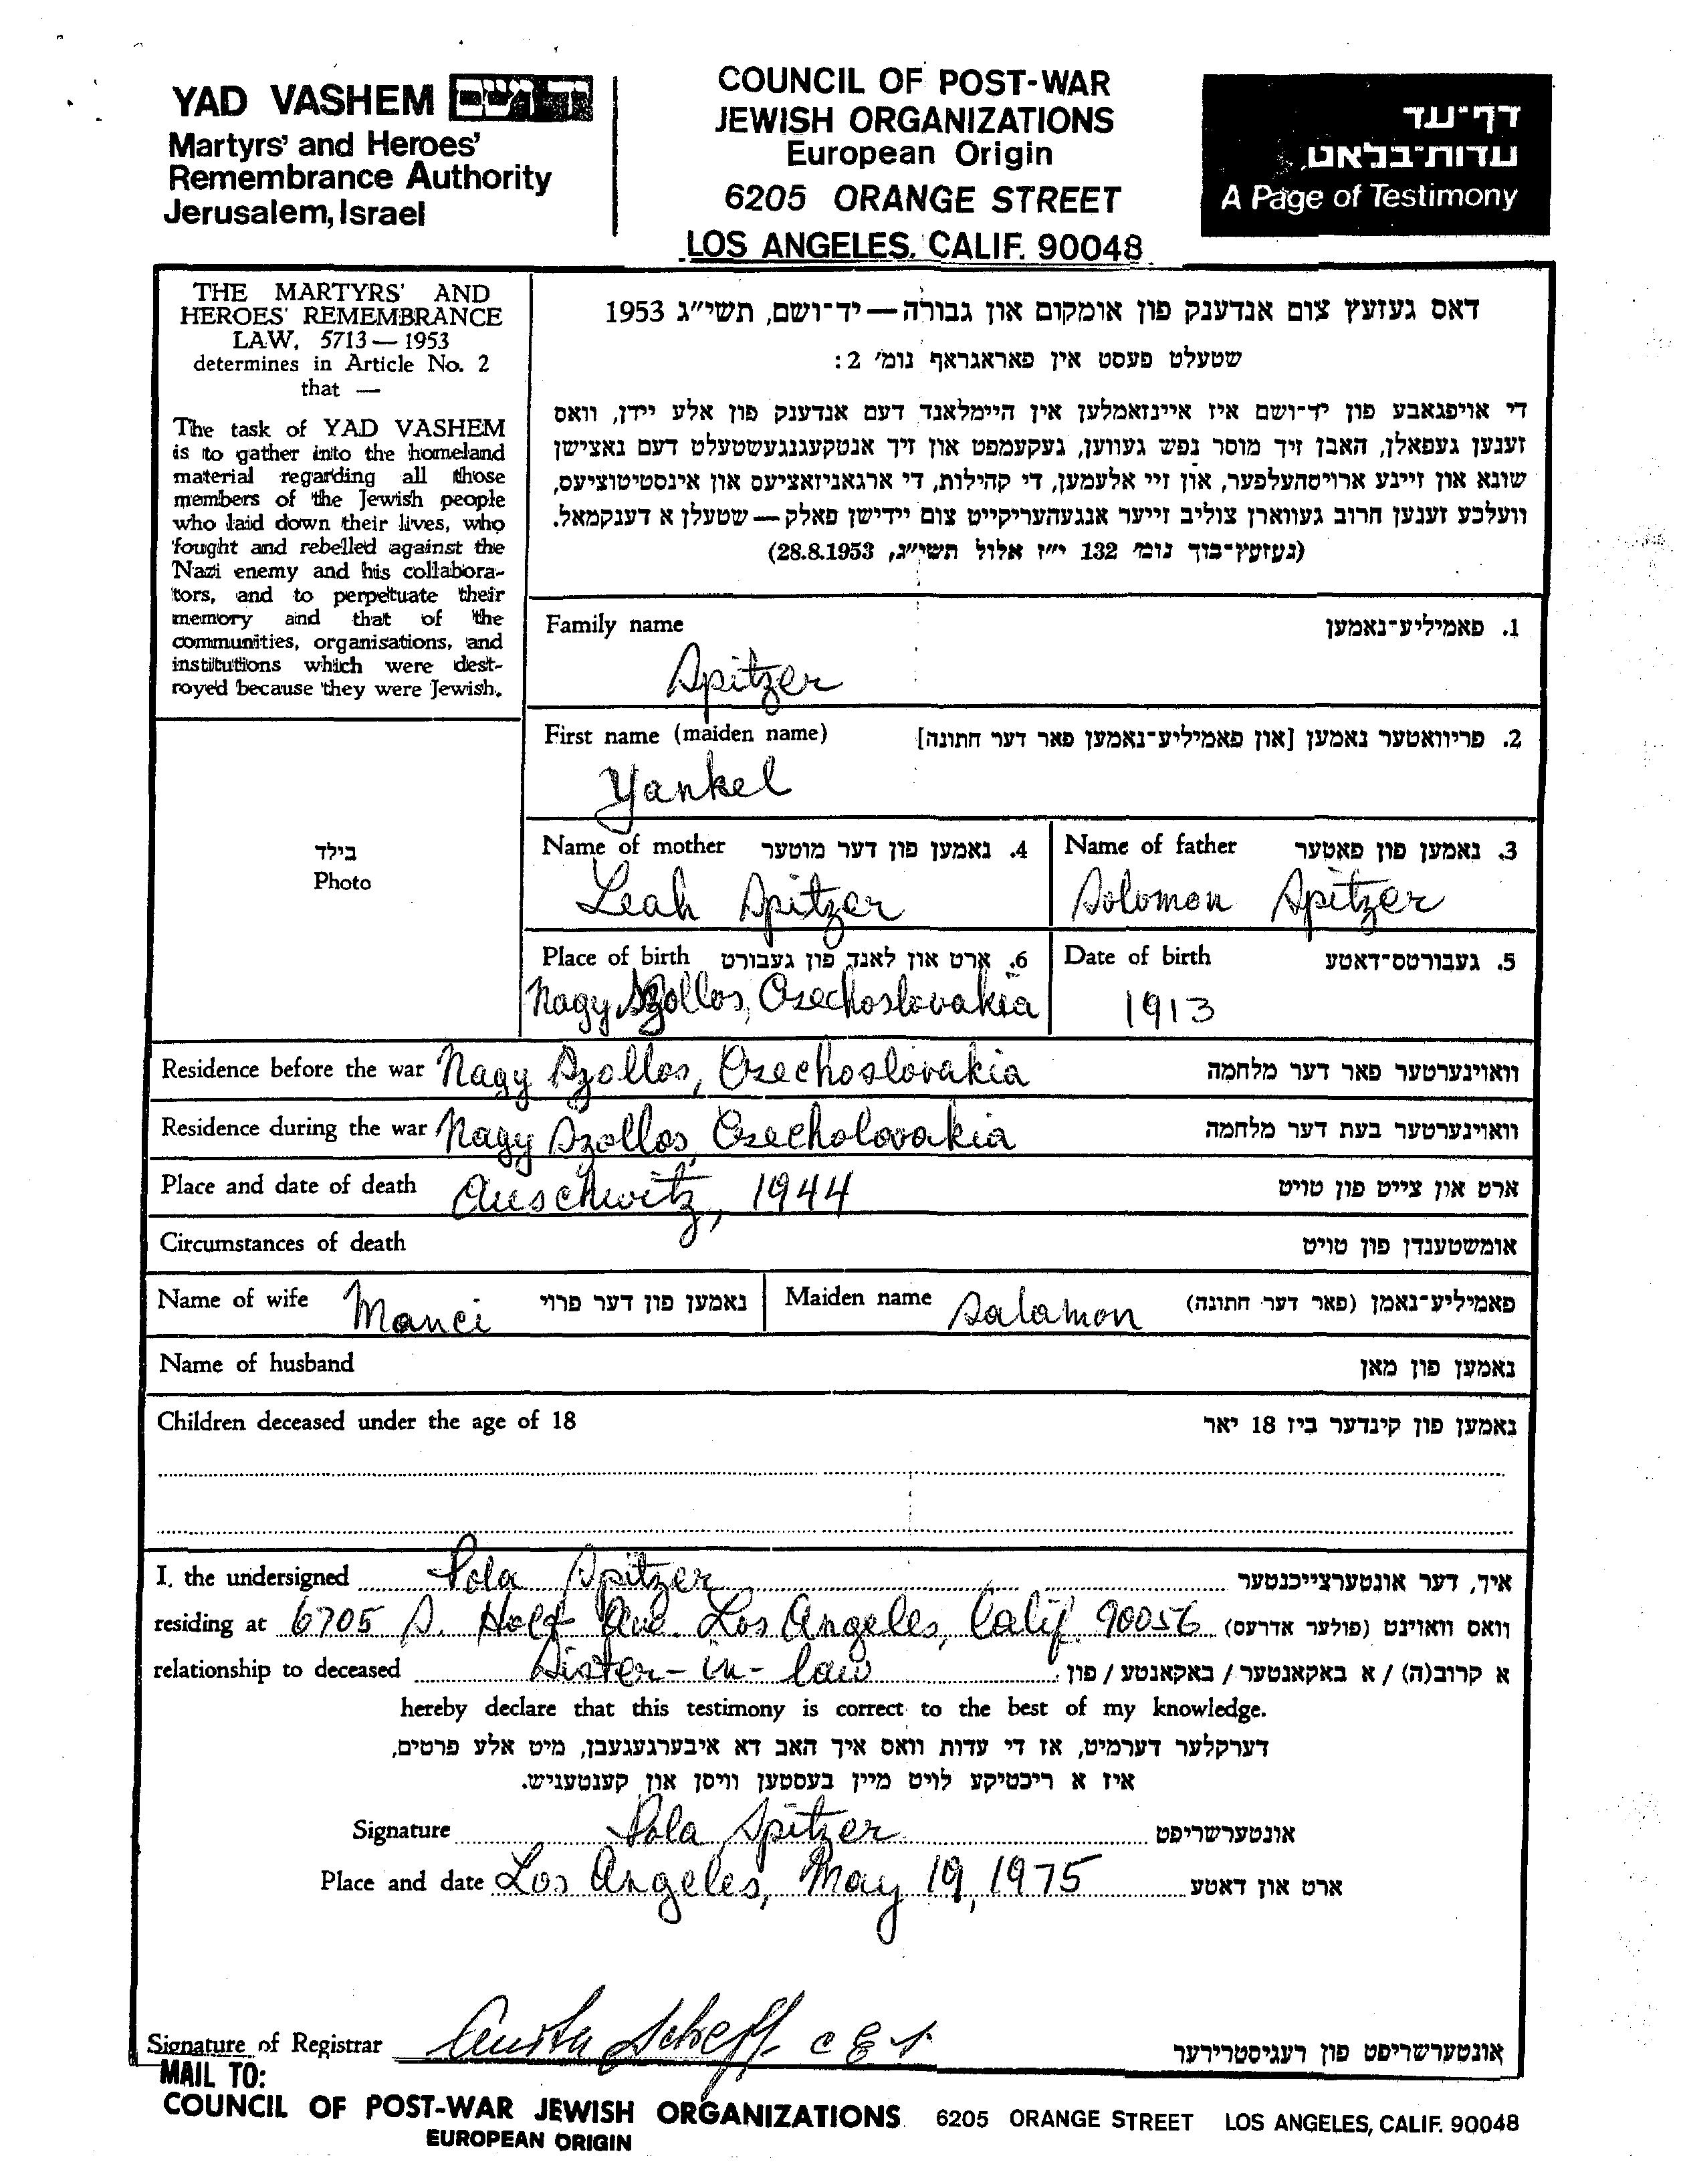 YAD VASHEM יד ושם
Martyrs' and Heroes'
Remembrance Authority
Jerusalem, Israel
COUNCIL OF POST-WAR
JEWISH ORGANIZATIONS
European Origin
6205 ORANGE STREET
LOS ANGELES, CALIF. 90048
דף־עד
עדות־בלאט
A Page of Testimony
THE MARTYRS' AND
HEROES' REMEMBRANCE
LAW, 5713—1953
determines in Article No. 2
that —
The task of YAD VASHEM
is to gather into the homeland
material regarding all those
members of the Jewish people
who laid down their lives, who
fought and rebelled against the
Nazi enemy and his collabora-
tors, and to perpetuate their
memory and that of the
communities, organisations, and
institutions which were dest-
royed because they were Jewish.
דאס געזעץ צום אנדענק פון אומקום און גבורה — יד־ושם, תשי״ג 1953
שטעלט פעסט אין פאראגראף נומ׳ 2:
די אויפגאבע פון יד־ושם איז איינזאמלען אין היימלאנד דעם אנדענק פון אלע יידן, וואס
זענען געפאלן, האבן זיך מוסר נפש געווען, געקעמפט און זיך אנטקעגנגעשטעלט דעם נאצישן
שונא און זיינע ארויסהעלפער, און זיי אלעמען, די קהילות, די ארגאניזאציעס און אינסטיטוציעס,
וועלכע זענען חרוב געווארן צוליב זייער אנגעהעריקייט צום יידישן פאלק — שטעלן א דענקמאל.
(געזעץ־בוך נומ׳ 132 י״ז אלול תשי״ג, 28.8.1953)
Family name 1. פאמיליע־נאמען
Spitzer
First name (maiden name) 2. פריוואטער נאמען [און פאמיליע־נאמען פאר דער חתונה]
Yankel
בילד
Photo
Name of mother 4. נאמען פון דער מוטער
Leah Spitzer
Name of father 3. נאמען פון פאטער
Solomon Spitzer
Place of birth 6. ארט און לאנד פון געבורט
Nagy Szollos, Czechoslovakia
Date of birth 5. געבורטס־דאטע
1913
Residence before the war Nagy Szollos, Czechoslovakia וואוינערטער פאר דער מלחמה
Residence during the war Nagy Szollos, Czecholovakia וואוינערטער בעת דער מלחמה
Place and date of death Auschwitz, 1944 ארט און צייט פון טויט
Circumstances of death אומשטענדן פון טויט
Name of wife Manci נאמען פון דער פרוי Maiden name Salamon פאמיליע־נאמן (פאר דער חתונה)
Name of husband נאמען פון מאן
Children deceased under the age of 18 נאמען פון קינדער ביז 18 יאר
I, the undersigned Pola Spitzer איך, דער אונטערצייכנטער
residing at 6705 S. Holt Ave. Los Angeles, Calif. 90056 וואס וואוינט (פולער אדרעס)
relationship to deceased Sister-in-law א קרוב(ה) / א באקאנטער / באקאנטע / פון
hereby declare that this testimony is correct to the best of my knowledge.
דערקלער דערמיט, אז די עדות וואס איך האב דא איבערגעגעבן, מיט אלע פרטים,
איז א ריכטיקע לויט מיין בעסטען וויסן און קענטעניש.
Signature Pola Spitzer אונטערשריפט
Place and date Los Angeles, May 19, 1975 ארט און דאטע
Signature of Registrar Scheff אונטערשריפט פון רעגיסטרירער
MAIL TO:
COUNCIL OF POST-WAR JEWISH ORGANIZATIONS 6205 ORANGE STREET LOS ANGELES, CALIF. 90048
EUROPEAN ORIGIN